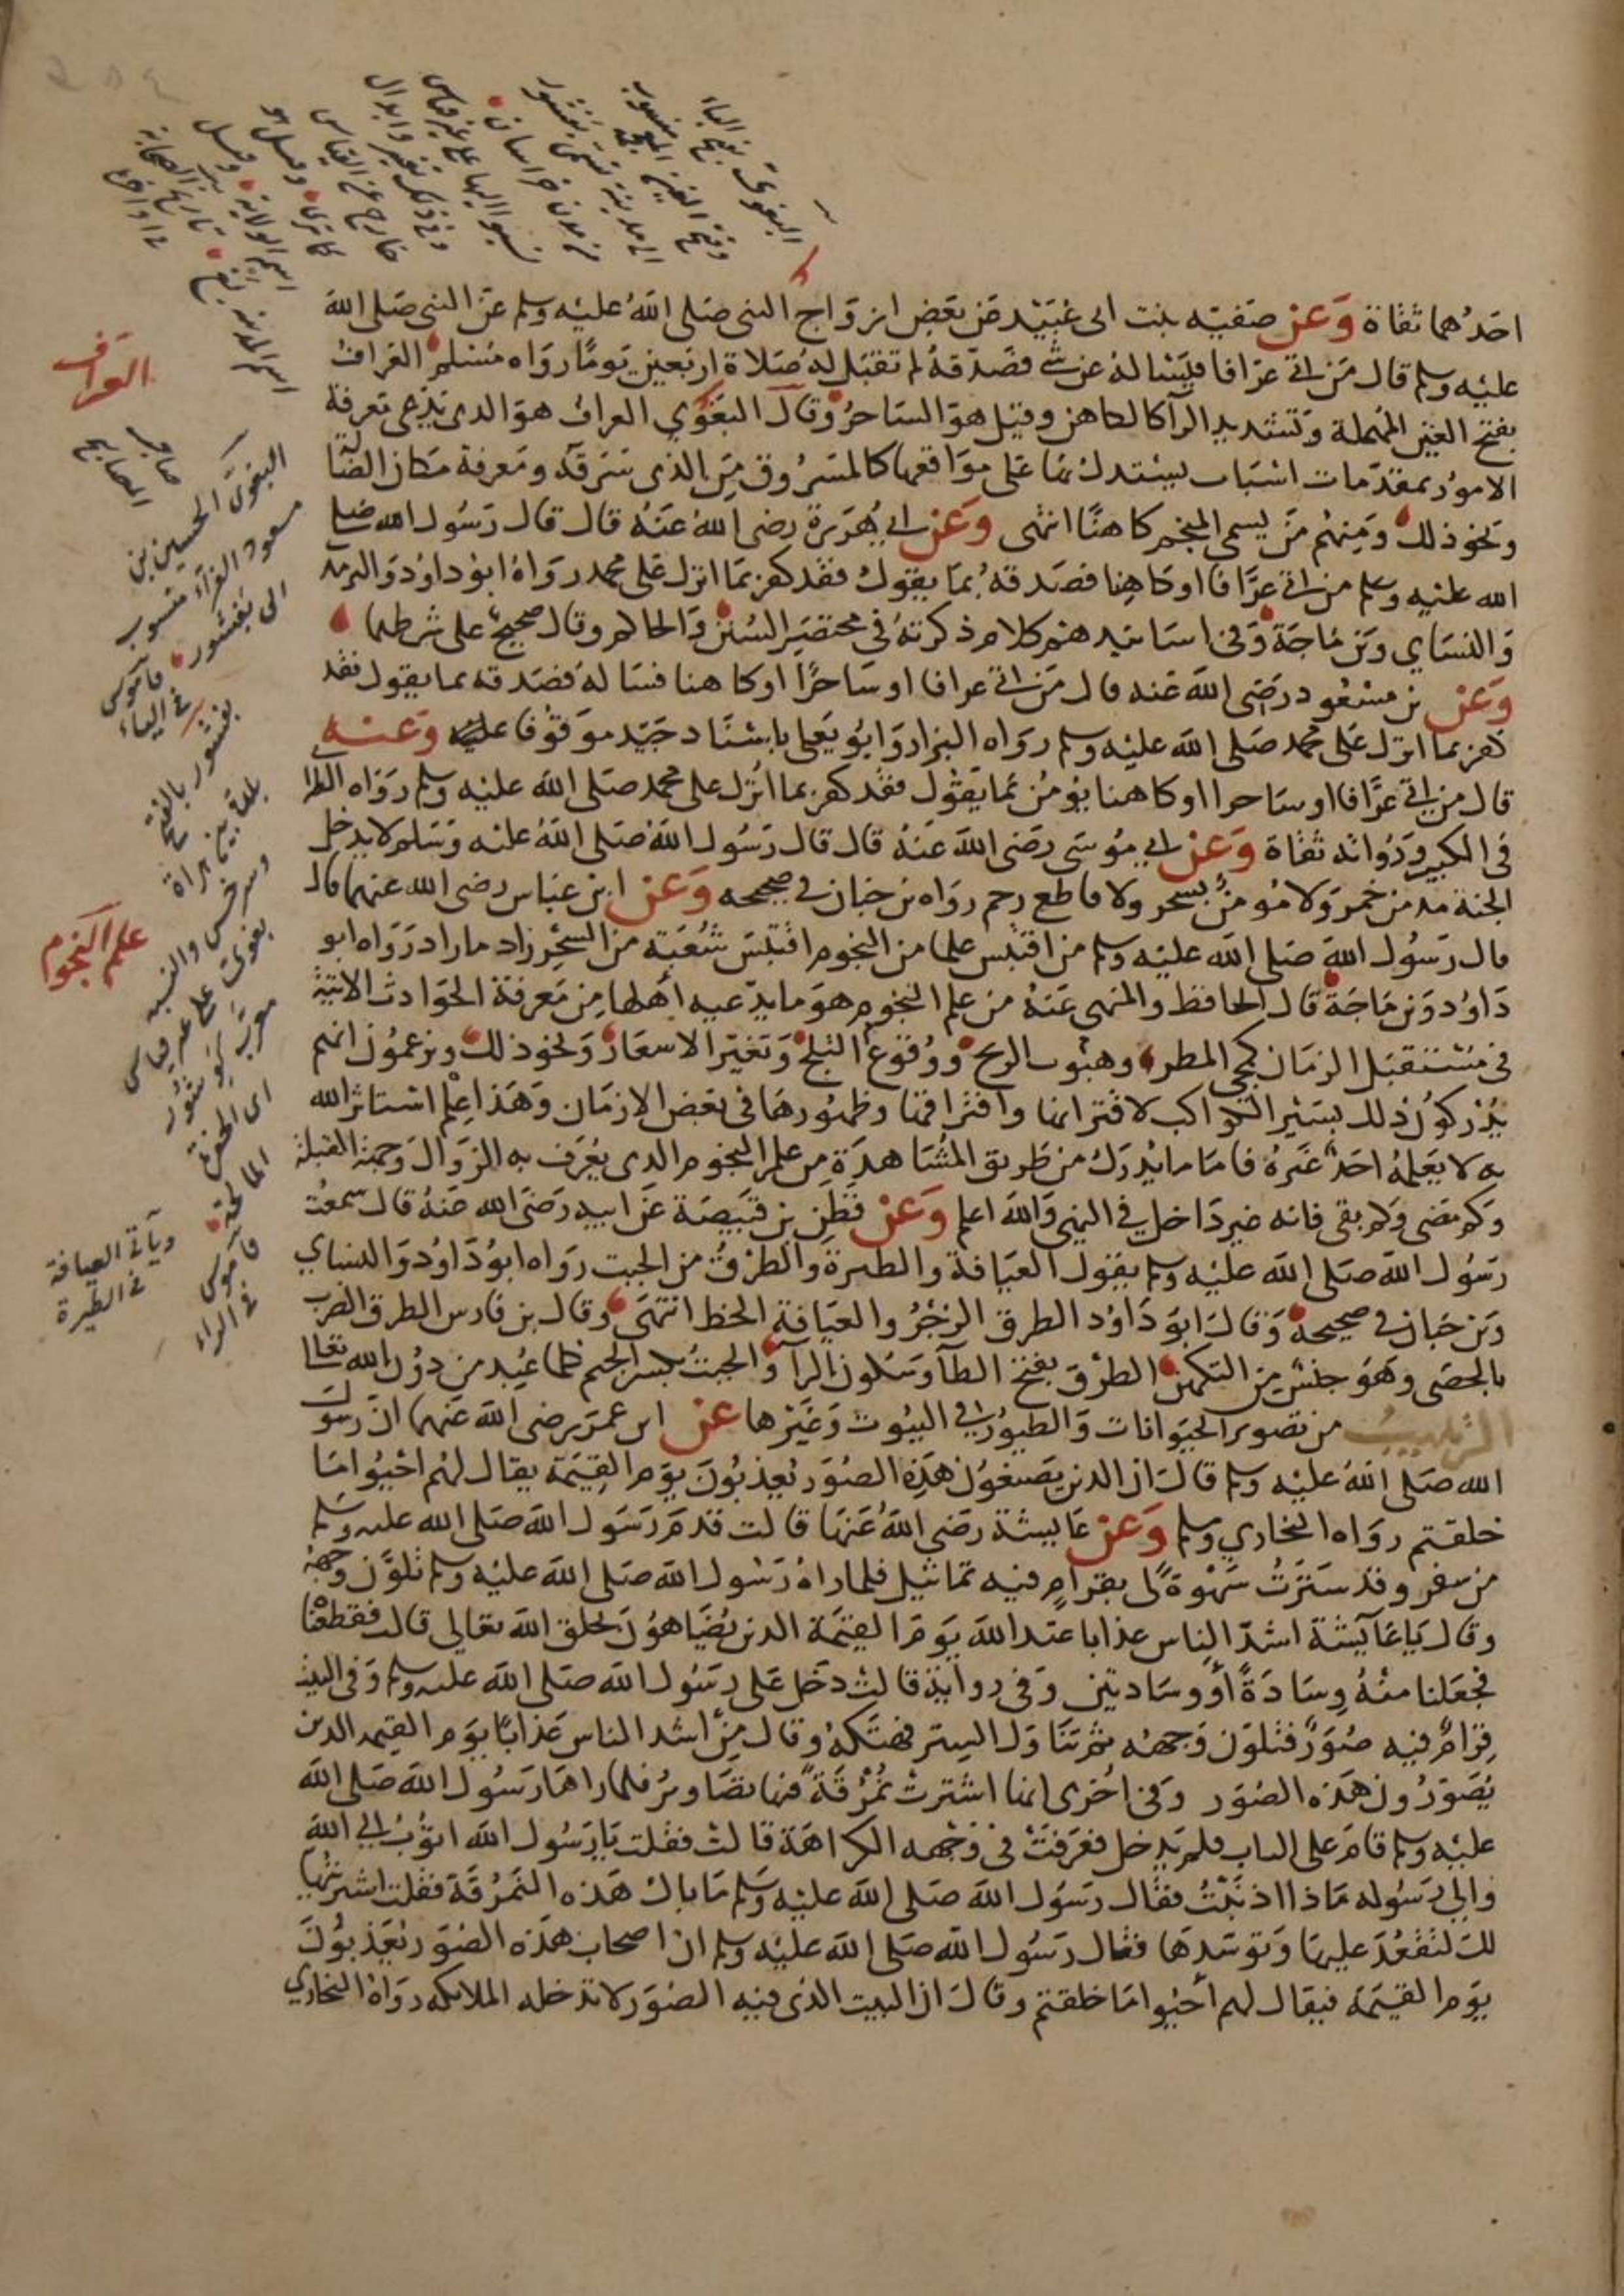 احدهما ثقاة وَعَن صَفيّه بنت ابى عُبَيْد عَن بَعض ازوَاج النبى صَلى اللهُ عليْه وسلم عَن النبى صَلى الله
عليْه وسلم قال مَن اتى عرّافا فيَسْالهُ عن شى فصَدّقهُ لم تقبَل لهُ صَلاة اربَعين يَومًا رواه مسْلم العَرافُ
بفتح العَين المُهملة وَتشديد الرآ كالكاهن وقيْل هوَ السَاحرُ وقالَ البَغَوي العراف هوَ الذى يَدّعى مَعرفة
الامورُ بمقدّمات اسْبَاب يستدل بهَا عَلى موَاقعها كالمسْرُوق مِنَ الذى سَرقه ومَعرفة مَكان الضالة
وَنحو ذلك وَمِنهُم مَن يسمى المنجّم كاهنًا انتهى وَعَن ابى هُرَيرة رضى اللهُ عَنهُ قال قال رَسُول الله صَلى
الله عليْه وسلم من اتى عرَّافا اوكاهِنا فصَدقهُ بمَا يقول فقد كفر بمَا انزل عَلى محمد روَاهُ ابوُ داوُد وَالترمذ
وَالنسَاي وَبن مَاجَة وَفى اسَانيدهم كلام ذكرتهُ فى مختصَر السُنن وَالحاكم وقال صَحيح على شرطهما
وَعَن بن مسْعُود رَضى اللهَ عَنه قال مَن اتى عرافا او سَاحرًا اوكاهنا فسَالهُ فصَدقه بما يقول فقد
كفر بما انزل عَلى محمد صَلى الله عليْه وسلم روَاه البزار وَابوُ يَعلى باسْنَاد جَيّد موَقوُفا عليه وَعَنه
قال من اتى عرَّافا اوسَاحرا اوكاهنا يؤمُن بمَا يَقوُل فقد كفر بما انزل على محمد صَلى اللهَ عليْه وسلم روَاه الطبرا
فى الكبير وَرُواته ثقَاة وَعَن ابى مُوسَى رَضى اللهَ عَنهُ قال قال رَسُول اللهَ صَلى اللهُ عليْه وَسَلم لا يدخل
الجنة مدمن خَمرَ وَلا مُومنٌ بسحر ولا قاطع رحم روَاه بن حبَان فى صحيحه وَعَن ابن عبَاس رضى الله عنهما قال
قال رسُول اللهَ صَلى الله عليْه وسلم من اقتبَس علما من النجوم اقتبَسَ شُعْبَة من السحْر زاد ما زاد رَوَاه ابو
دَاوُد وَبن مَاجَة قال الحافظ والمنهى عَنهُ من علم النجوم هوَ ما يدّعيه أهلها مِن مَعرفة الحوَادث الاتيَة
فى مسْتقبَل الزمَان كمجى المطر وهبُوب الريح ووُقوع الثلج وَتغيّر الاسعَار وَنحوذلك ويزعمُون انهم
يُدْركوُن ذلك بسَيْر الكواكب لاقترانها وافترَاقهَا وظهُورهَا فى بَعْض الازمَان وَهَذا عِلم اسْتاثر الله
به لا يَعلمُه احَدٌ غَيرُه فامَا ما يُدرَك من طَريق المشَاهدَة مِن علم النجوم الذى يُعْرَف به الزوَال وَجهَة القبلة
وَكم مَضى وَكم بقى فانه غير دَاخل فى النهى وَالله اعلم وَعَن قطَن بن قبَيصَة عَن ابيه رَضى الله عَنهُ قال سمعْت
رَسُول اللهَ صَلى اللهَ عليْه وسلم يقول العيَافة والطيرة والطرْقُ من الجبت روَاه ابوُ دَاوُد وَالنساي
وَبن حبَان فى صحيحهُ وَقال ابوَ دَاوُد الطرق الزجْرُ والعيَافة الخط انتهَى وقال بن فارس الطرق الضرب
بالحصَى وَهوَ جنسٌ من التكهنُ الطرْقَ بفتح الطآ وسَكون الرآ وَالجبتُ بكسر الجيم كلما عُبد من دوُن الله تعالى
الترهيبُ من تصوير الحيَوانات وَالطيوُر فى البيُوت وَغَيْرها عَن ابن عمَرَ رضى الله عَنهما انّ رسُولَ
الله صَلى اللهُ عليْه وسلم قالَ ان الذين يَصنعوُن هَذِه الصُوَر يُعذبوُنَ يَوم القِيمَة يقال لهُم احْيُوا مَا
خلقتم روَاه البخاري وسلم وَعَن عَايشة رَضى اللهُ عَنهَا قالت قدمَ رَسُول اللهَ صَلى الله عليه وَسلم
من سفر وقد سَترتُ سَهْوةً لى بقرَامٍ فيه تمَاثيل فلما رَاهُ رَسُول اللهَ صَلى الله عليْه وسلم تلوَّن وَجهُهُ
وقالَ يَا عَآيشة اشدّ الناس عذابا عندَ اللهَ يَومَ القيمَة الذين يُضَاهؤنَ بخلق اللهَ تعَالى قالت فقطعْنا
فجعَلنا منهُ وِسَادَةً أوْ وسَادتين وَفى روايَة قالت دَخل عَلى رسُول اللهَ صَلى الله عليه وسلم وَفى البيت
قِرَامٌ فيه صُوَرٌ فتلوّن وَجهُه ثم تنَاوَل الستر فهتكهُ وقال منْ اشد الناس عَذابًا يوَم القيمه الذين
يُصَورُون هَذه الصُوَر وَفى اُخرى انها اشترتْ نُمْرُقَةً فيها تصَاويرُ فلما رَاهَا رَسُول اللهَ صَلى اللهَ
عليْه وسلم قامَ على الباب فلم يَدخل فعَرَفتْ فى وَجهه الكراهَة قالت فقلت يَا رَسُول الله اتوُبُ الى الله
وَالى رَسُوله مَاذا اذنَبْتُ فقال رَسُول اللهَ صَلى الله عليْه وَسلم مَا بال هَذه النمرُقَة فقلت اشتريتُها
لكَ لتقعُدَ عليهَا وَتوسّدهَا فقال رَسُول اللهَ صَلى الله عليْه وسلم ان اصحاب هَذه الصُوَر يُعَذبوُنَ
يَوم القيمَة فيقال لهم أحْيُوا مَا خلقتم وقالَ ان البيت الذى فيه الصُوَر لا تدخله الملائكه روَاهُ البخاري
العراف
علم النجوم
صاحب
المصابيح
البغوى الحسين بن
مسعود الفراء منسوب
الى بغشور قاموس
فى الياء
بغشور بالفتح
بلدة بين هراة
وسرخس والنسبة
بغوى على غير قياس
معرب كوشور
اى الحفرة
المالحة
قاموس
فى الراء
ويأتى العيافة
فى الطيرة
البغوى بفتح الباء